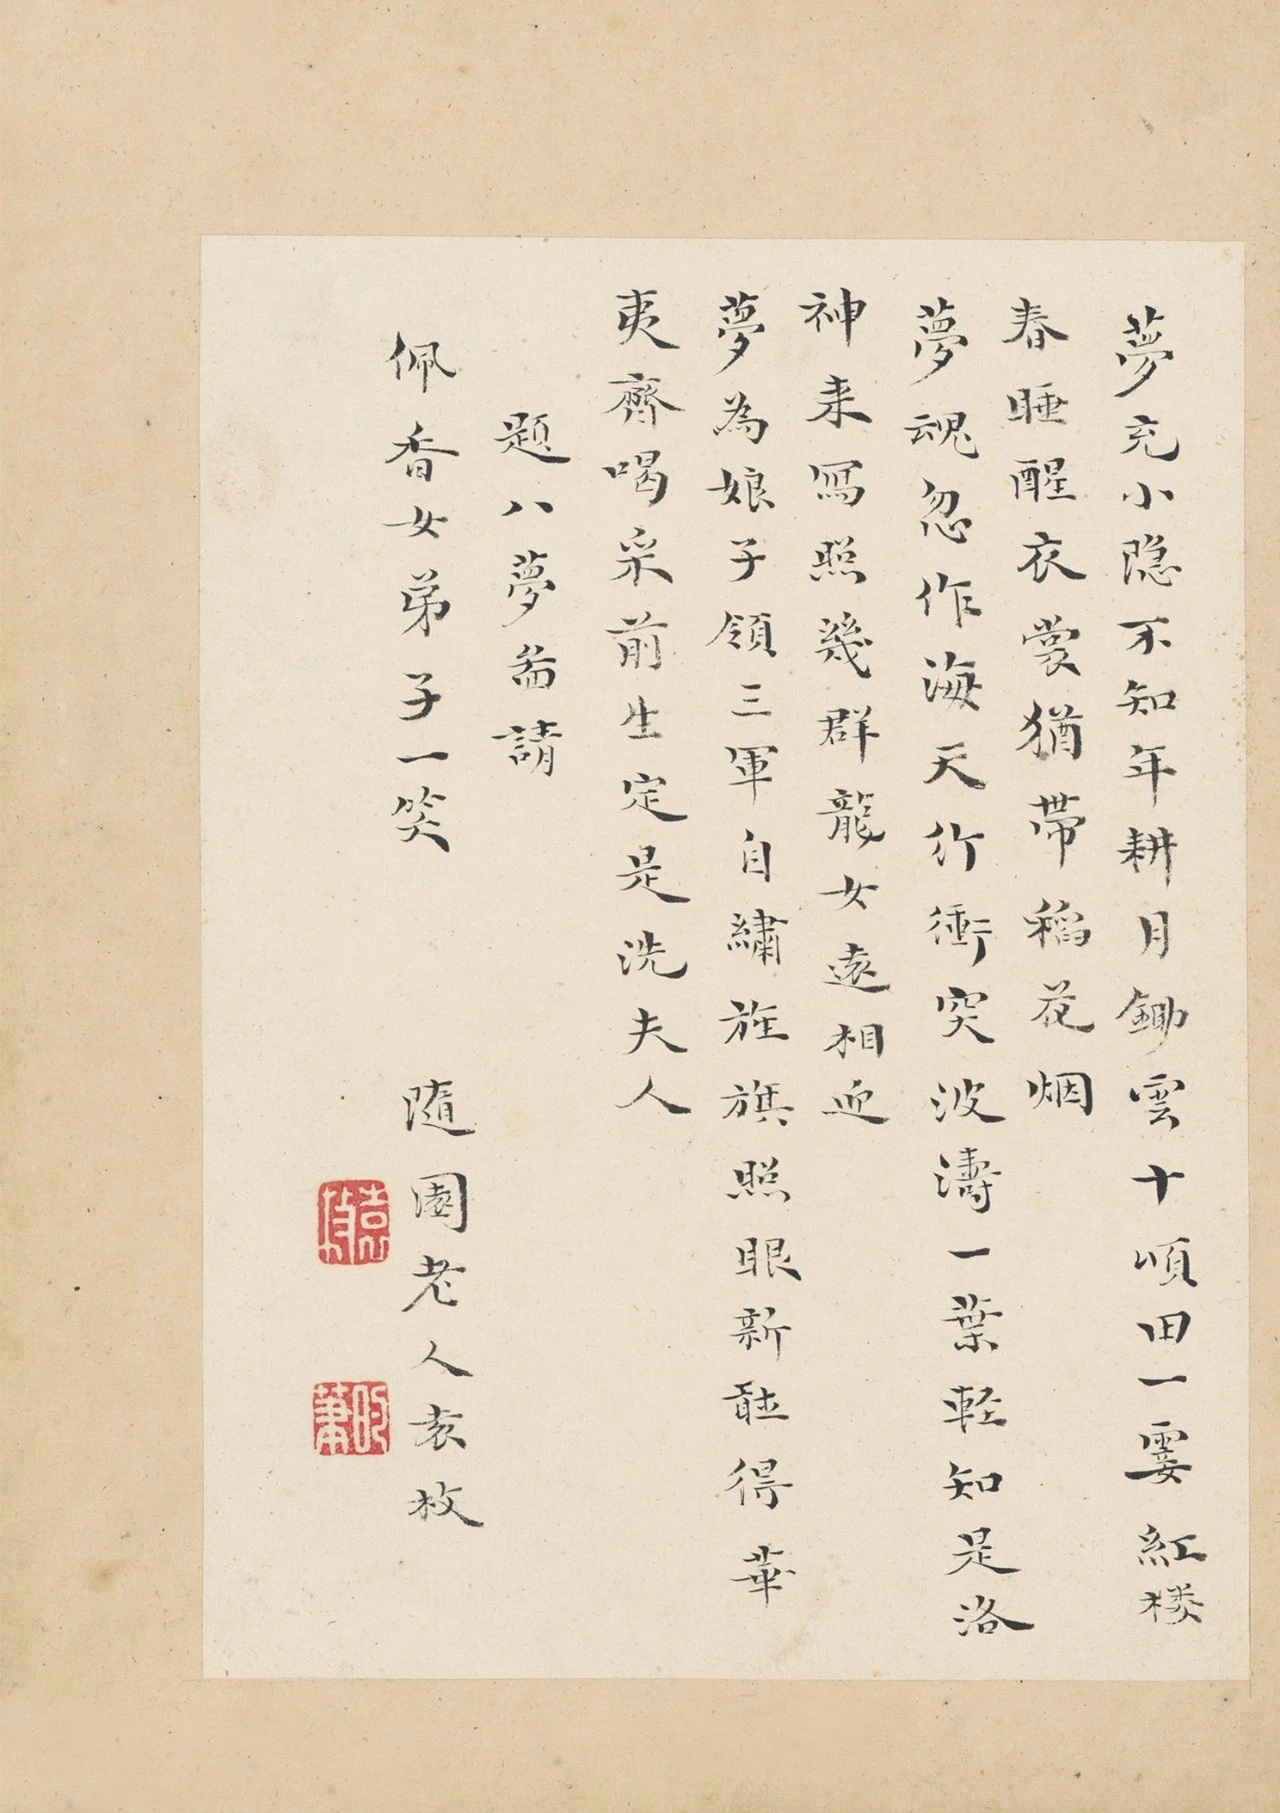 夢充小隐不知年耕月鋤雲十頃田一霎紅楼
春睡醒衣裳猶帶稻花烟
夢魂忽作海天行衝突波濤一葉軽知是洛
神来寫照幾群龍女遠相迎
夢為娘子領三軍自繡旌旗照眼新駈得華
夷齊喝采前生定是洗夫人
題八夢畨請
佩香女弟子一笑
隨園老人袁枚
袁枚